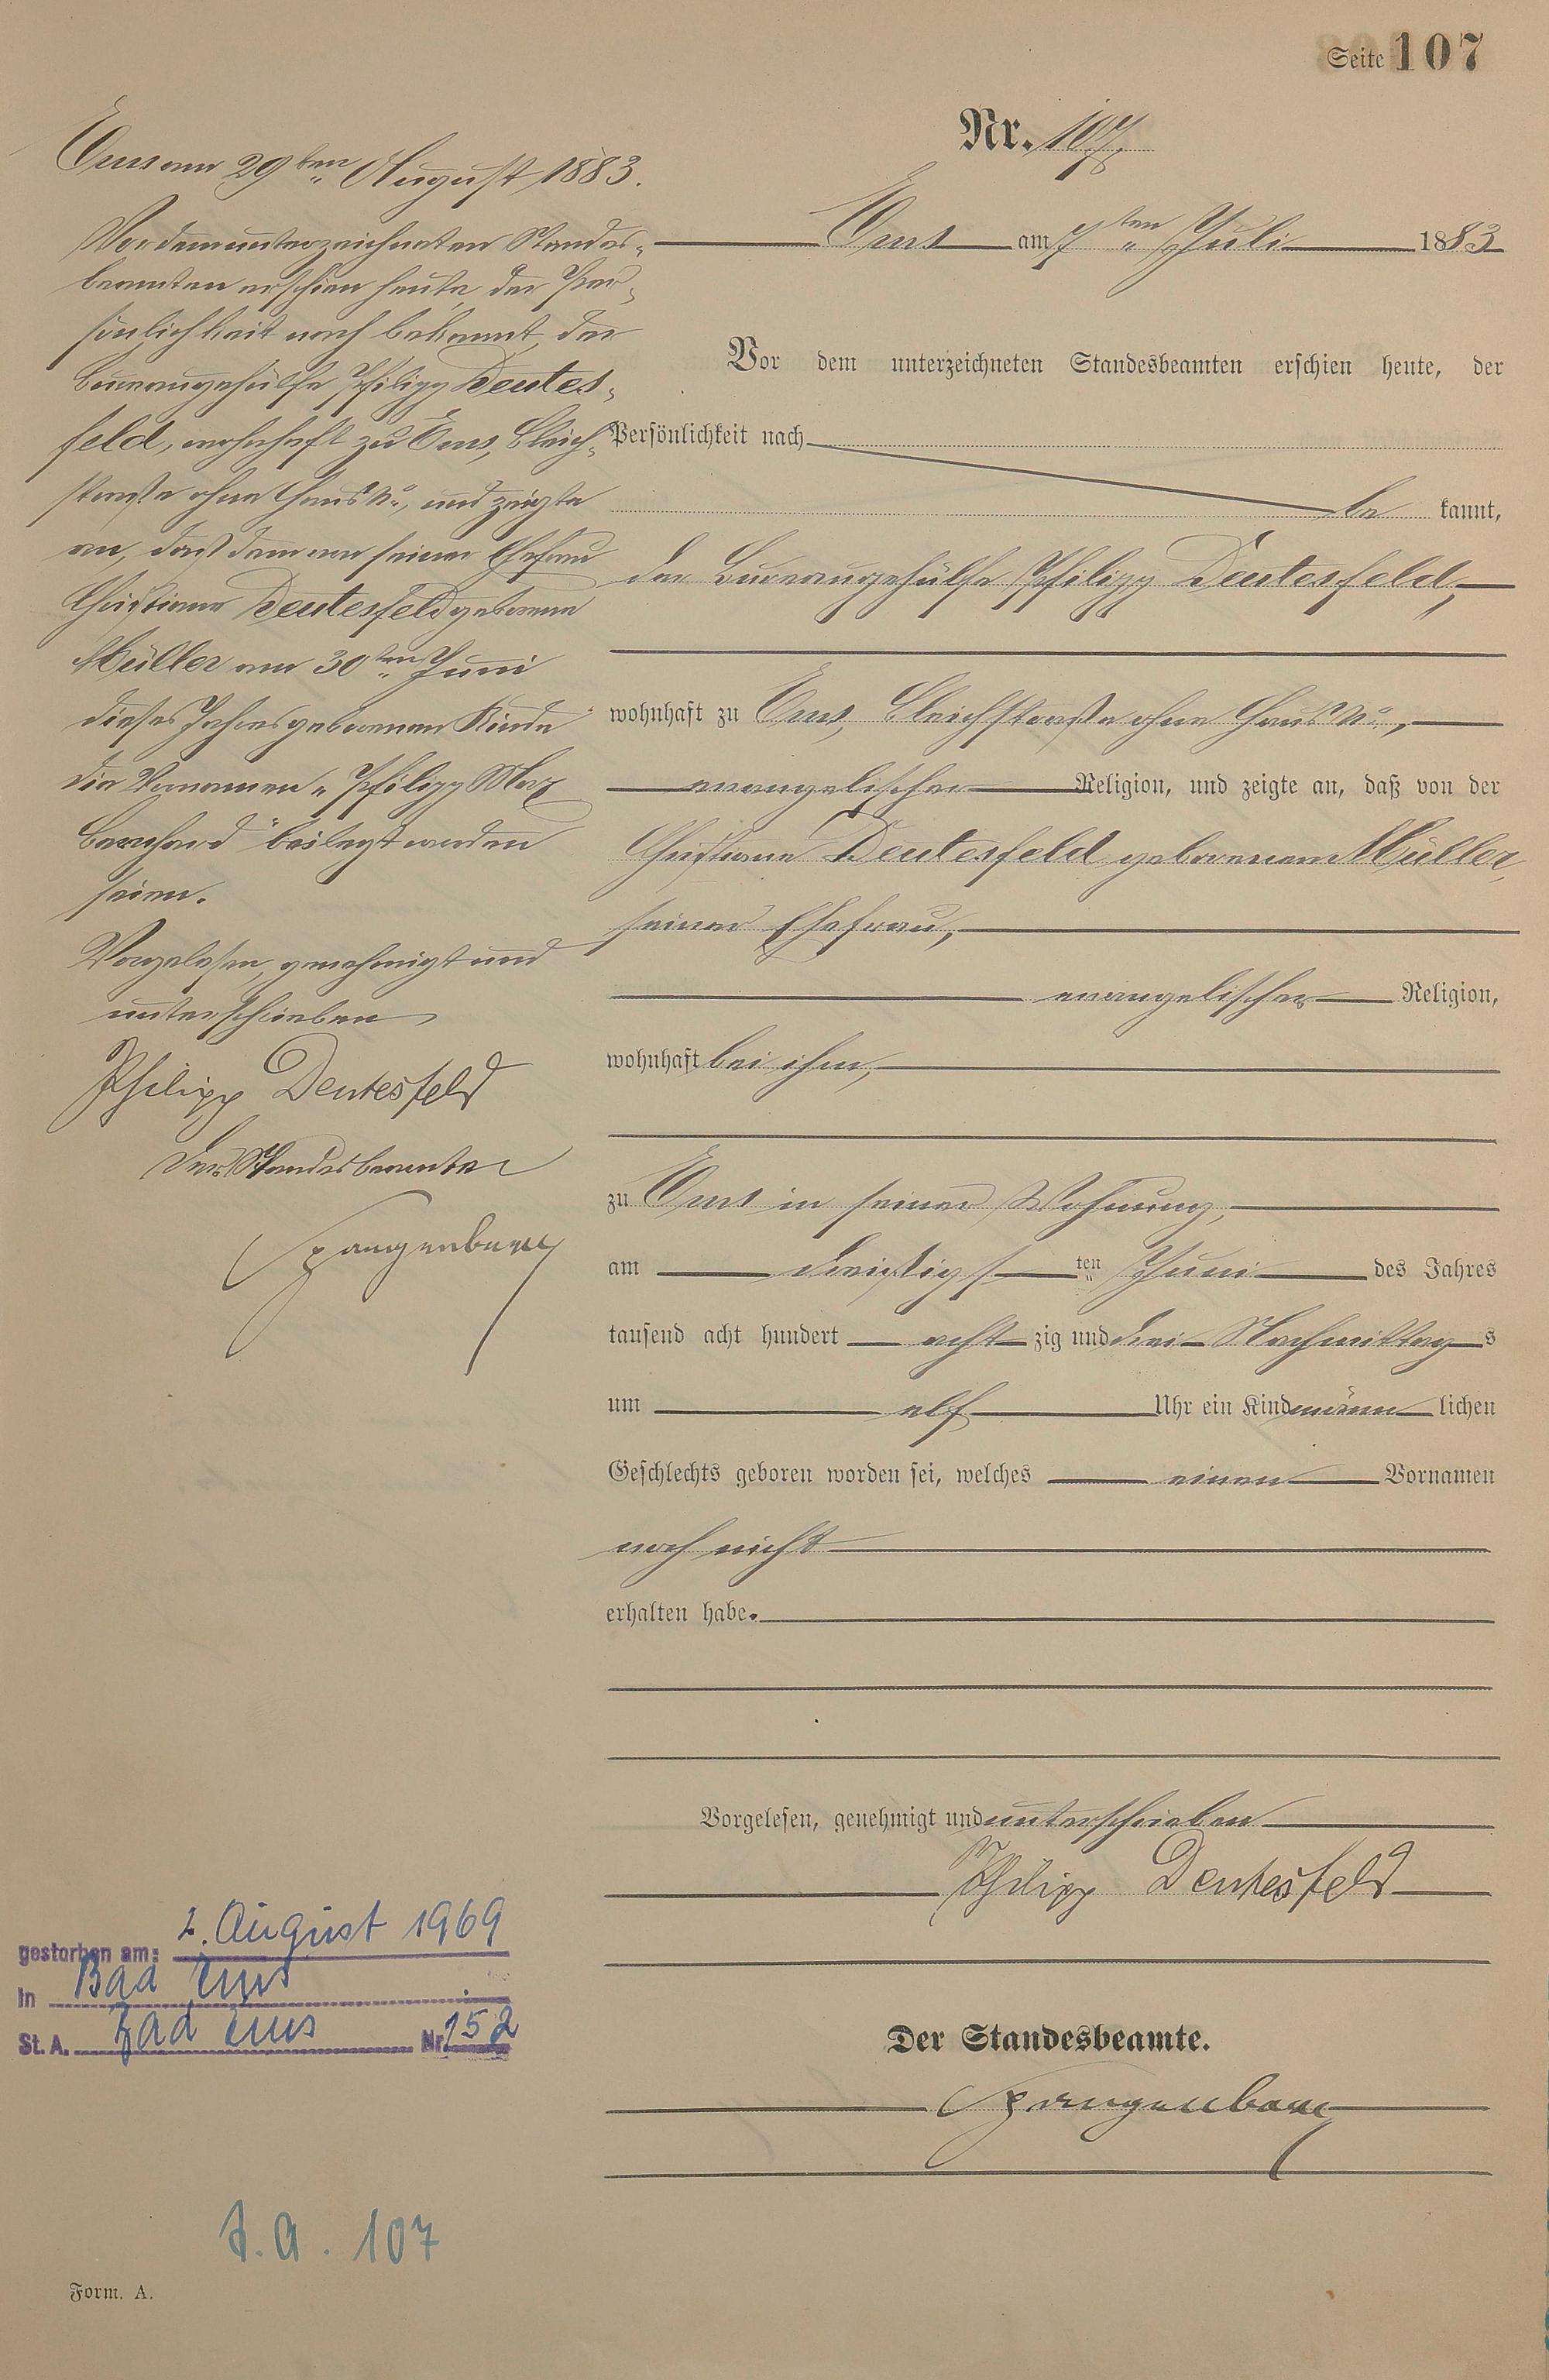 Seite 107
Nr. 107.
Ems am 7ten Juli 1883
Vor dem unterzeichneten Standesbeamten erschien heute, der
Persönlichkeit nach
be kannt,
der Bureaugehülfe Philipp Deutesfeld,
wohnhaft zu Ems, Bleichstraße ohne Haus No.,
evangelischer Religion, und zeigte an, daß von der
Christiane Deutesfeld geborenen Müller,
seiner Ehefrau,
evangelischer Religion,
wohnhaft bei ihm,
zu Ems in seiner Wohnung,
am dreißigs ten Juni des Jahres
tausend acht hundert acht zig und drei Nachmittag s
um elf Uhr ein Kind männ lichen
Geschlechts geboren worden sei, welches einen Vornamen
noch nicht
erhalten habe.
Vorgelesen, genehmigt und unterschrieben
Philipp Deutesfeld
Der Standesbeamte.
Spangenberg
Ems am 29ten August 1883.
Vor dem unterzeichneten Standes-
beamten erschien heute, der Per-
sönlichkeit nach bekannt, der
Bureaugehülfe Philipp Deutes-
feld, wohnhaft zu Ems, Bleich-
straße ohne Haus No., und zeigte
an, daß dem von seiner Ehefrau
Christiane Deutesfeld geborene
Müller am 30ten Juni
dieses Jahres geborenen Kinde
die Vornamen „Philipp Max
Bernhard" beilegt worden
seien.
Vorgelesen, genehmigt und
unterschrieben
Philipp Deutesfeld
Der Standesbeamte
Spangenberg
gestorben am: 2. August 1969
in Bad Ems
St. A. Bad Ems Nr. 152
107
Form. A.